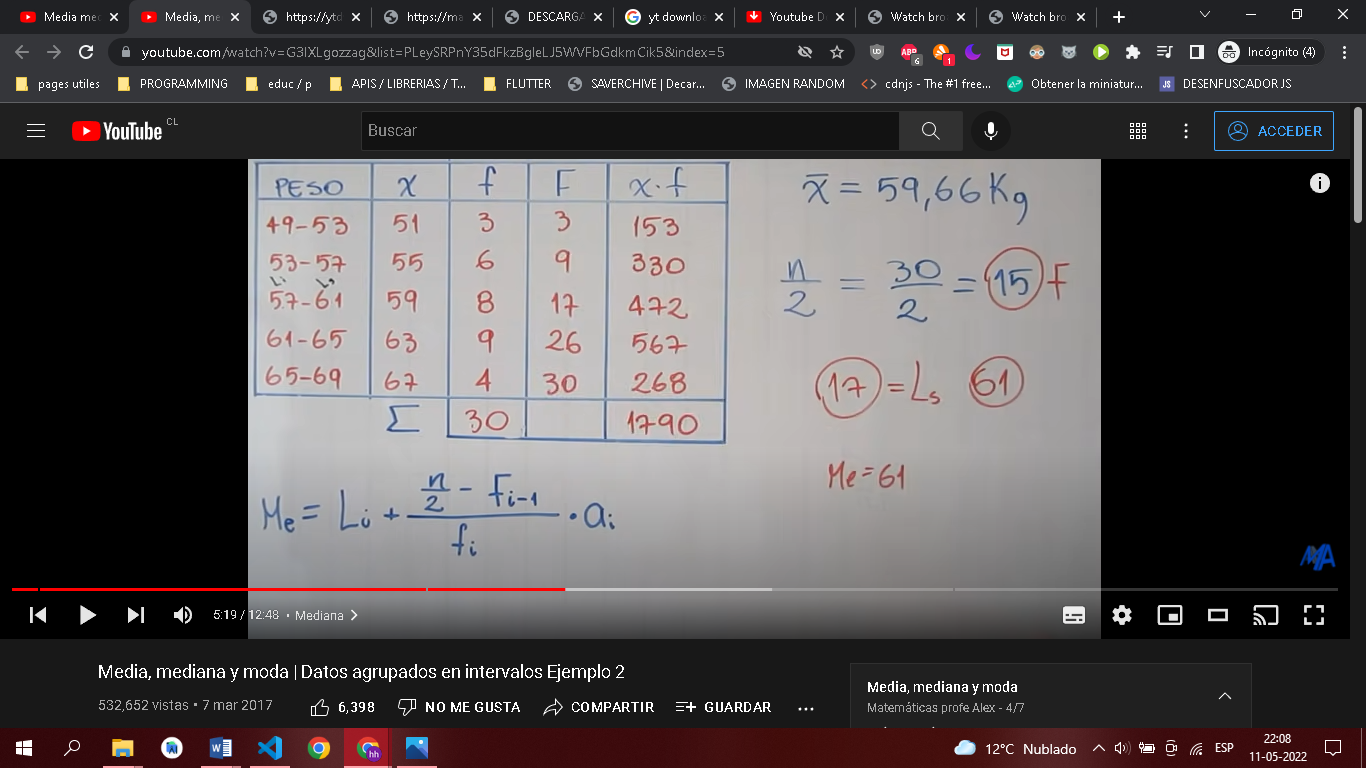 Media med
Media, me
https://ytd
https://ma
DESCARGA
yt downloa
Youtube D
Watch bro
Watch bro
youtube.com/watch?v=G3lXLgozzag&list=PLeySRPnY35dFkzBgleLJ5WVFbGdkmCik5&index=5
Incógnito (4)
pages utiles
PROGRAMMING
educ / p
APIS / LIBRERIAS / T...
FLUTTER
SAVERCHIVE | Decar...
IMAGEN RANDOM
cdnjs - The #1 free...
Obtener la miniatur...
DESENFUSCADOR JS
YouTube CL
Buscar
ACCEDER
PESO x f F x·f
49-53 51 3 3 153
53-57 55 6 9 330
Li Ls
57-61 59 8 17 472
61-65 63 9 26 567
65-69 67 4 30 268
Σ 30 1790
x̄ = 59,66 Kg
n/2 = 30/2 = 15 F
17 = Ls 61
Me = 61
Me = Li + (n/2 - Fi-1)/fi · ai
MA
5:19 / 12:48 • Mediana
Media, mediana y moda | Datos agrupados en intervalos Ejemplo 2
532,652 vistas • 7 mar 2017
6,398
NO ME GUSTA
COMPARTIR
GUARDAR
Media, mediana y moda
Matemáticas profe Alex - 4/7
12°C Nublado
ESP
22:08
11-05-2022